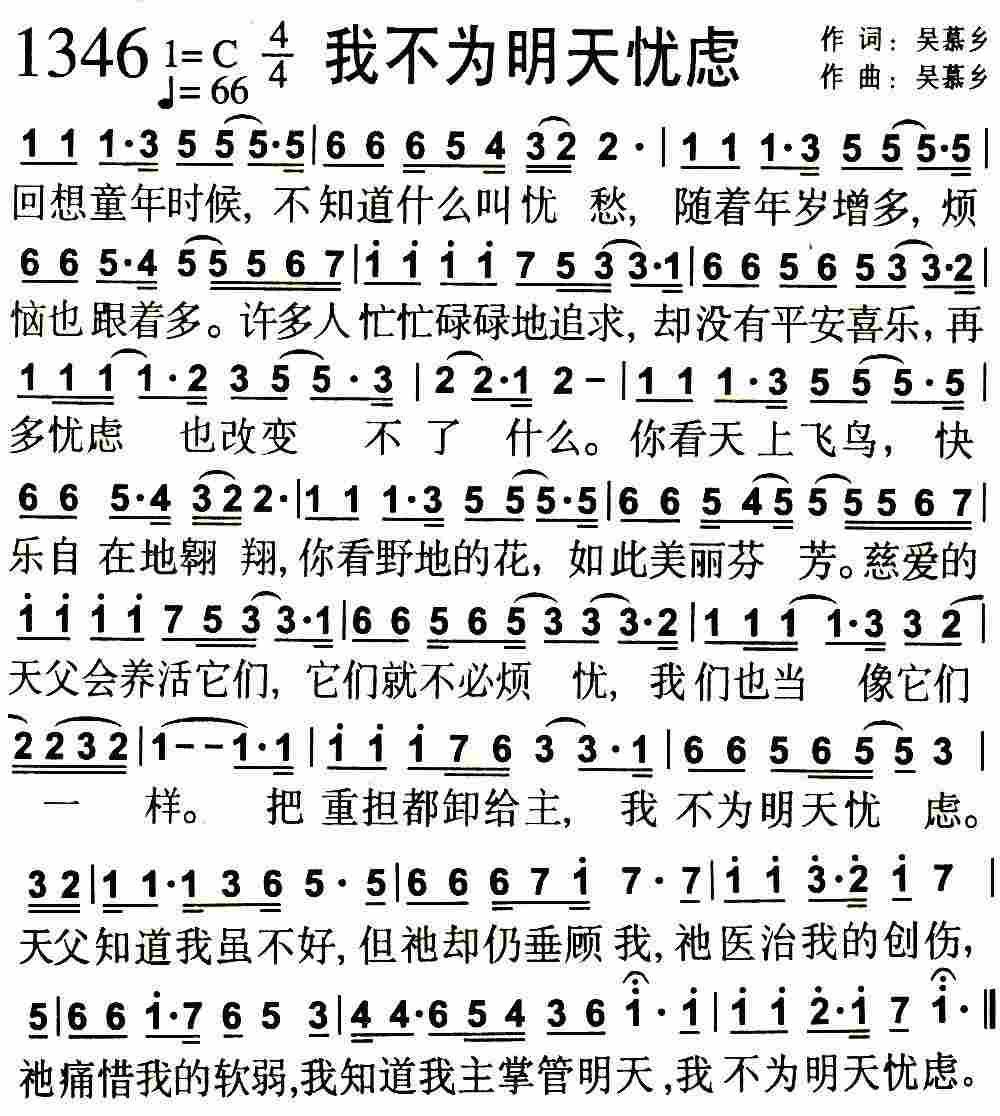 1346 1=C 4/4 我不为明天忧虑 作 词：吴慕乡
♩=66 作 曲：吴慕乡
1 1 1·3 5 5 5·5|6 6 6 5 4 3 2 2 · |1 1 1·3 5 5 5·5|
回想童年时候, 不知道什么叫忧 愁, 随着年岁增多, 烦
6 6 5·4 5 5 5 6 7|i i i i 7 5 3 3·1|6 6 5 6 5 3 3·2|
恼也跟着多。许多人忙忙碌碌地追求, 却没有平安喜乐, 再
1 1 1 1·2 3 5 5·3 |2 2·1 2 − |1 1 1·3 5 5 5·5|
多忧虑 也改变 不了 什么。你看天上飞鸟, 快
6 6 5·4 3 2 2·|1 1 1·3 5 5 5·5|6 6 5 4 5 5 5 5 6 7|
乐自在地翱 翔, 你看野地的花, 如此美丽芬 芳。慈爱的
i i i i 7 5 3 3·1|6 6 5 6 5 3 3 3·2|1 1 1 1 1·3 3 2|
天父会养活它们, 它们就不必烦 忧, 我们也当 像它们
2 2 3 2|1−−1·1|i i i 7 6 3 3·1|6 6 5 6 5 5 3 |
一 样。 把重担都卸给主, 我不为明天忧 虑。
3 2|1 1·1 3 6 5·5|6 6 6 7 i 7·7|i i 3·2 i 7 |
天父知道我虽不好, 但祂却仍垂顾我, 祂医治我的创伤,
5|6 6 i·7 6 5 3|4 4·6 5 4 3 6 i·i|i i 2·i 7 i·‖
祂痛惜我的软弱, 我知道我主掌管明天, 我不为明天忧虑。